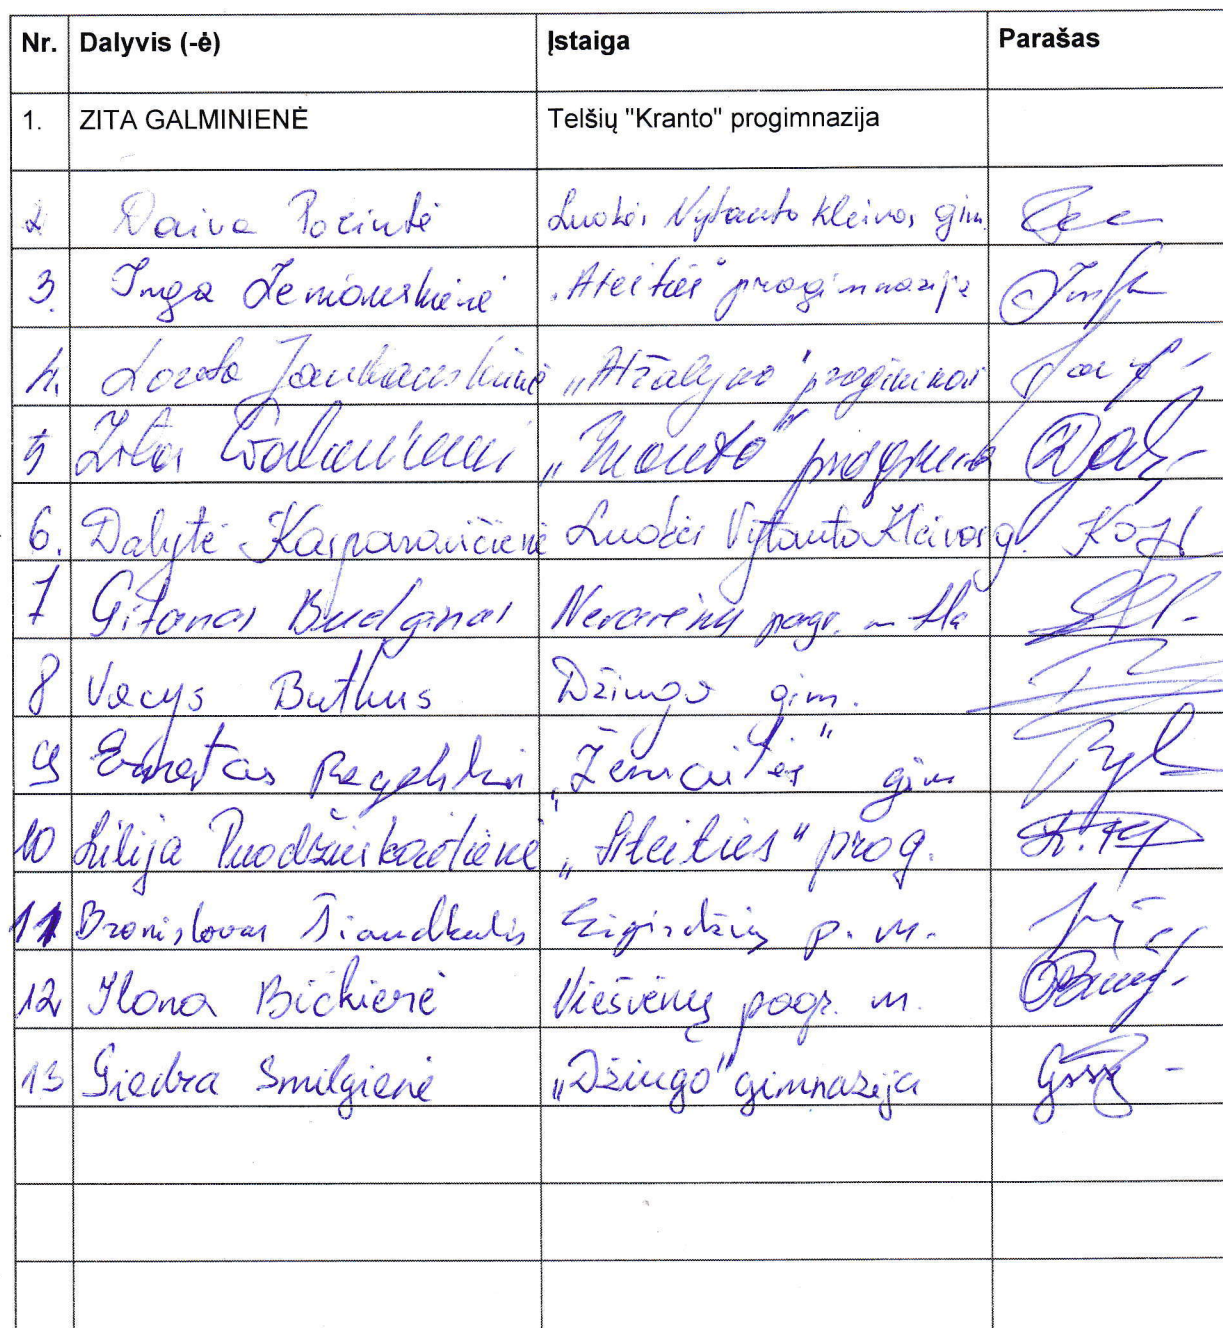 Nr. Dalyvis (-ė) Įstaiga Parašas
1. ZITA GALMINIENĖ Telšių "Kranto" progimnazija
2 Daiva Pociutė Luokės Vytauto Kleivos gim.
3. Inga "Ateities" progimnazija
4. Loreta Jankauskienė „Atžalyno" progimnaz
5 Zita „Kranto"
6. Dalytė Kasparavičienė Luokės Vytauto Kleivos g.
7 Gitanas Budginas Nevarėnų pagr. m-kla
8 Vacys Butkus Džiugo gim.
9 „Žemaitės" gim
10 Lilija „Ateities" prog.
11 Bronislovas Šiaudkulis Eigirdžių p. m.
12 Ilona Bičkienė Viešvėnų pagr. m.
13 Giedra Smilgienė „Džiugo" gimnazija